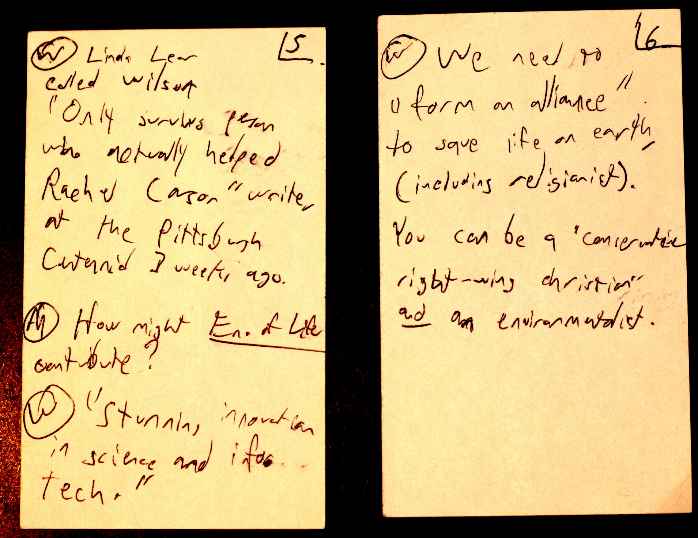 5
W Linda Lear
called Wilson
"Only survivs person
who actually helped
Rachel Carson" write,
at the Pittsburgh
3 weeks ago.
M How might En. of Life
contribute?
W "Stunning innovation
in science and info
tech."
6
W We need to
"form an alliance"
to save life on earth,
(including religionist).
You can be a "conservative
right-wing christian"
and an environmentalist.